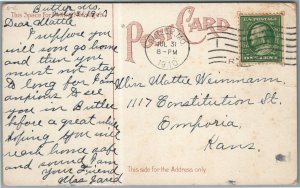 Butler, Mo.
This Space
July 31, 1910
Dear Mattie
I suppose you
will soon go home
and then you
must not stay
to long for I am
anxious to see
you in Butler
before a great while
hoping you will
reach home safe
and sound I am
your Friend
POST CARD
JUL 31
8-PM
1910
Miss Mettie Weinmann,
1117 Constitution St.
Emporia,
Kans.
This side for the Address only